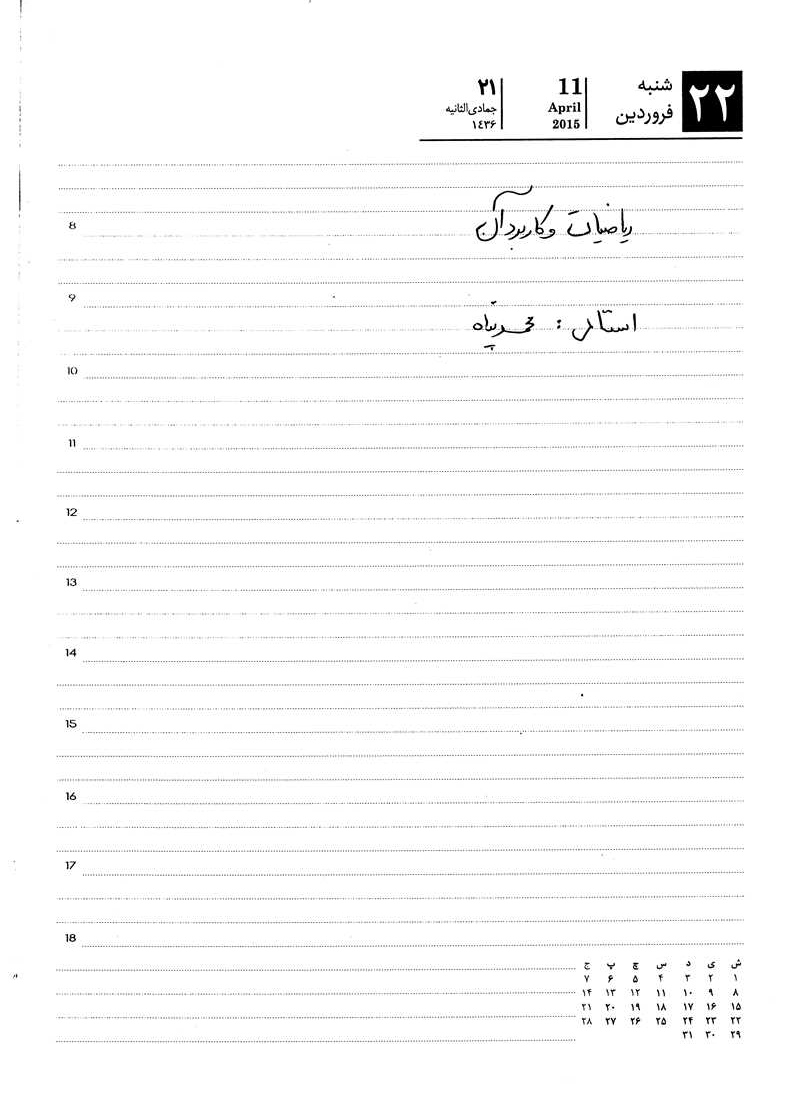 ۲۲
شنبه
فروردین
11
April
2015
۲۱
جمادی‌الثانیه
۱٤۳۶
8
ریاضیات و کاربرد آن
9
استاد : محمد پناه
10
11
12
13
14
15
16
17
18
ش ی د س چ پ ج
۱ ۲ ۳ ۴ ۵ ۶ ۷
۸ ۹ ۱۰ ۱۱ ۱۲ ۱۳ ۱۴
۱۵ ۱۶ ۱۷ ۱۸ ۱۹ ۲۰ ۲۱
۲۲ ۲۳ ۲۴ ۲۵ ۲۶ ۲۷ ۲۸
۲۹ ۳۰ ۳۱